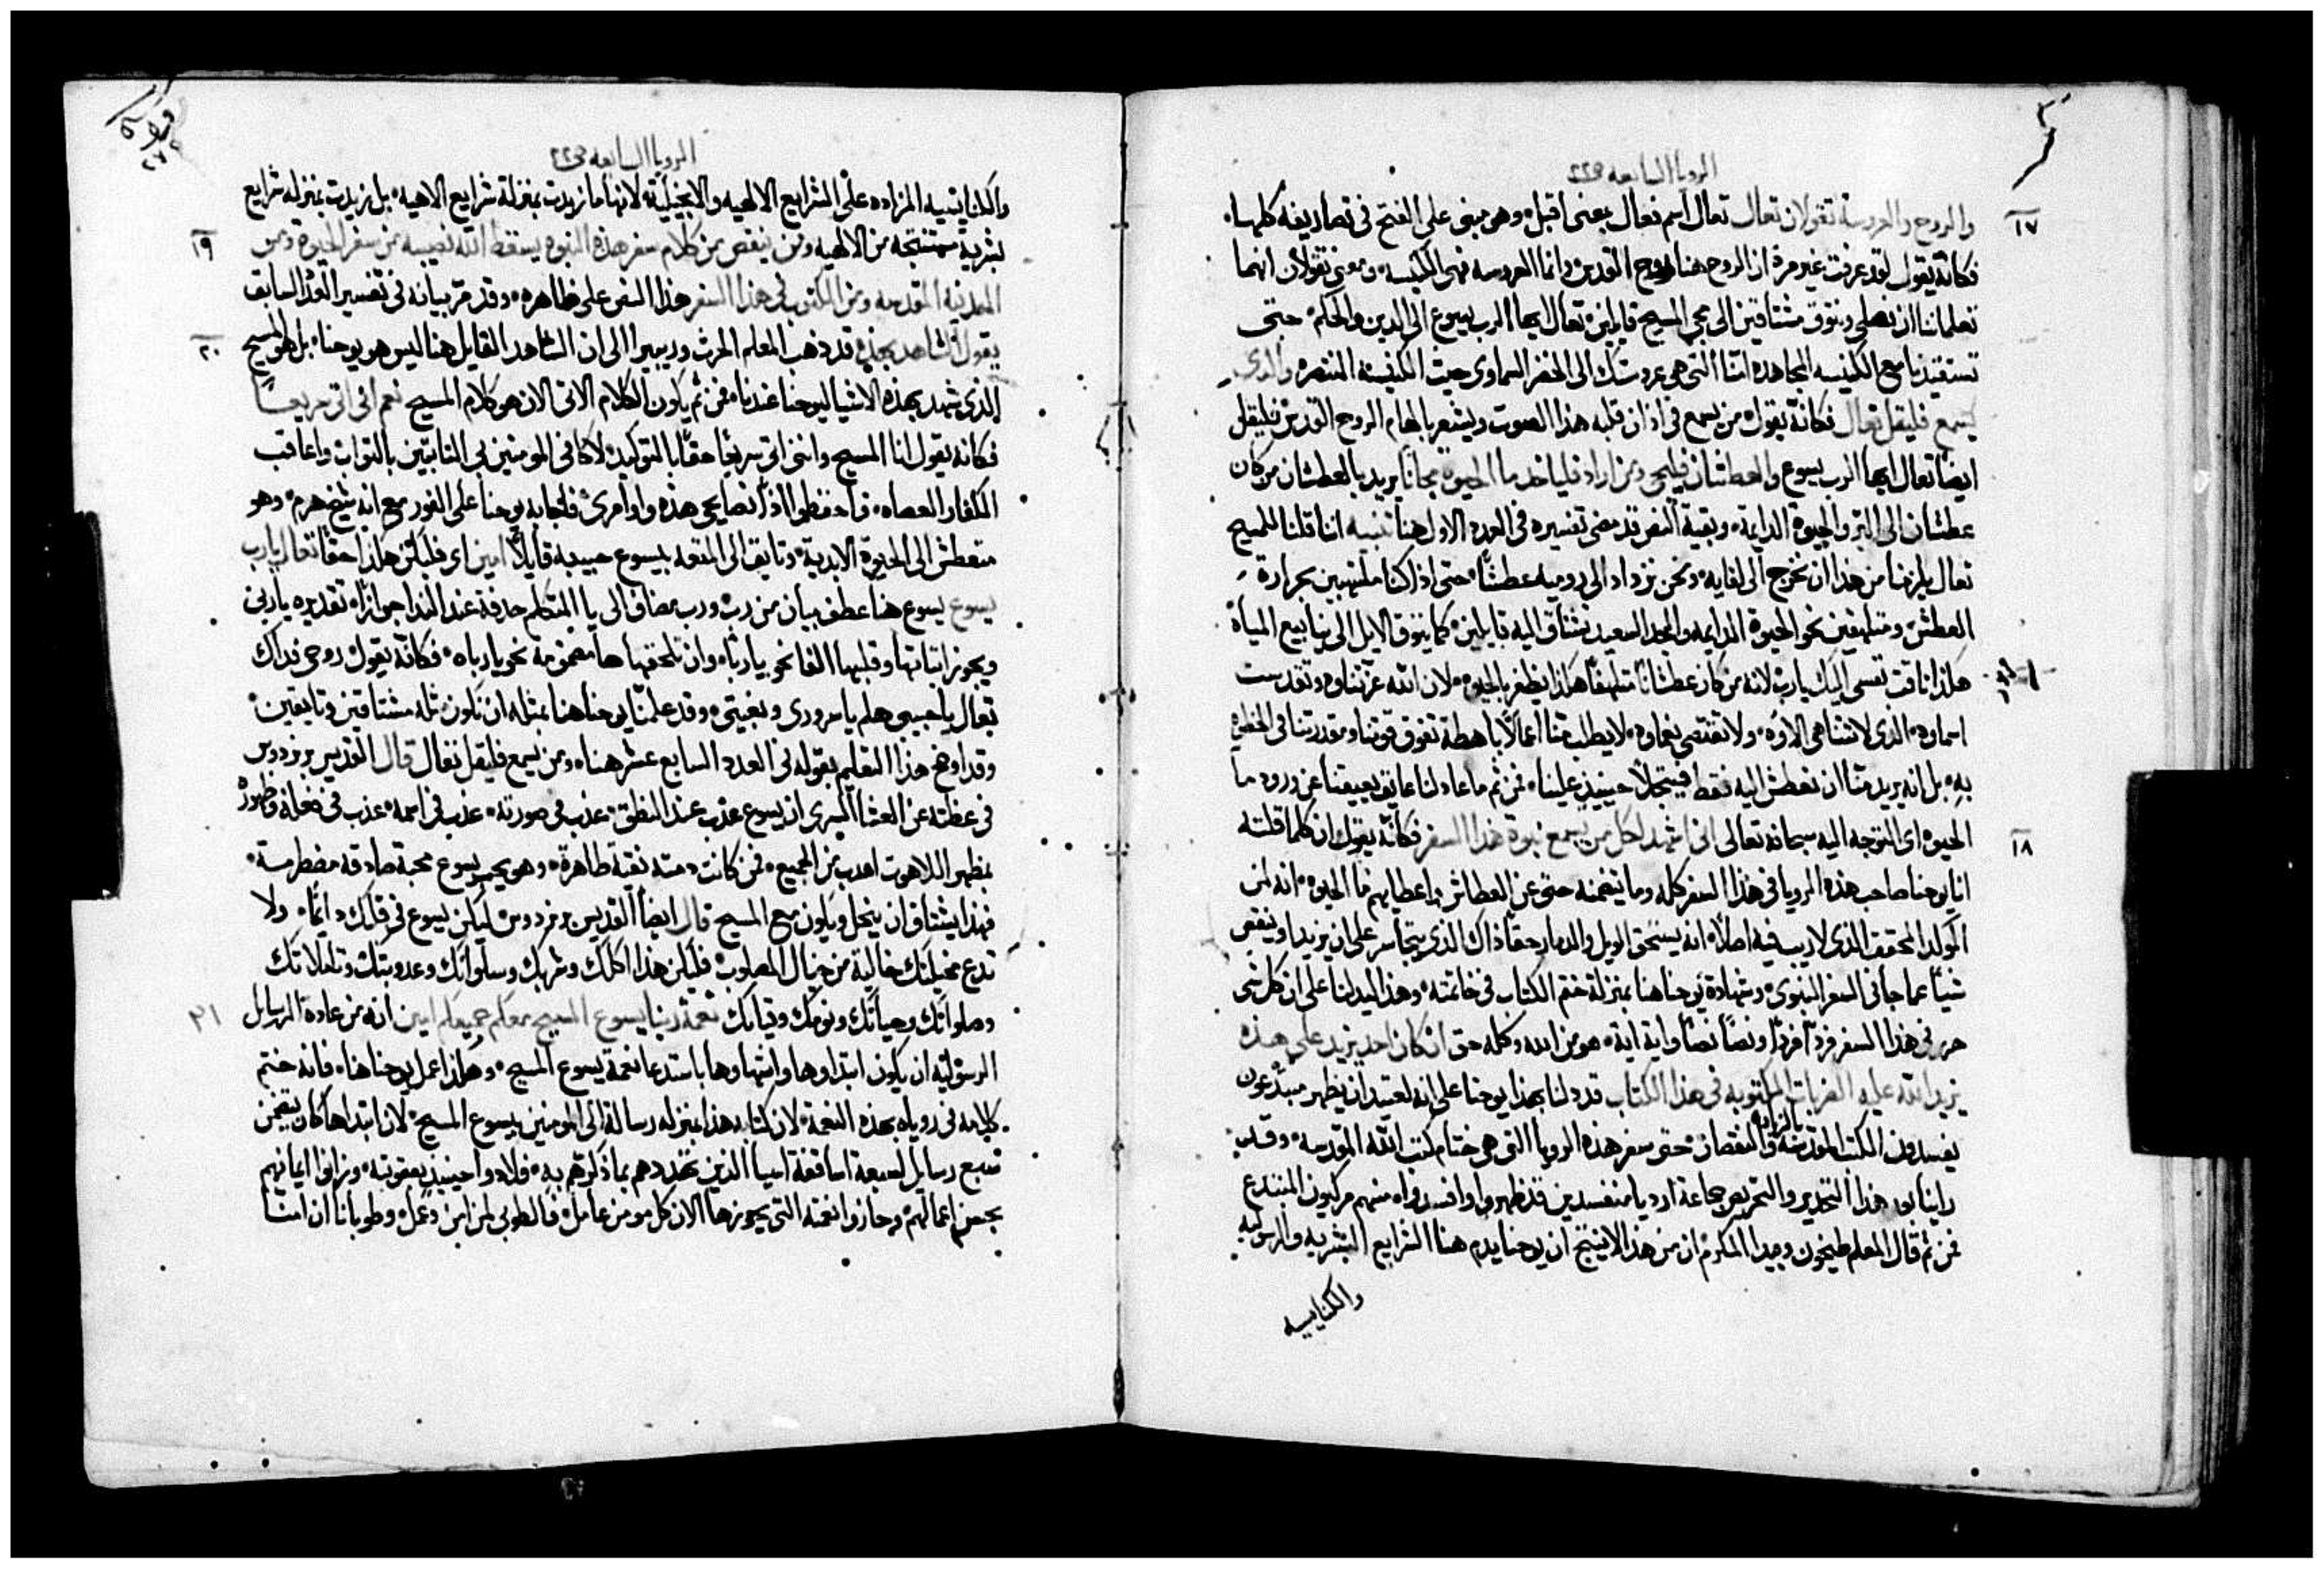 الرويا السابعه ٢٢
١٧ والروح والعروسة تقولان تعال تعال اسم فعال بمعنى اقبل وهى مبنى على الفتح فى تصاريفه كلها
فكانه يقول لقد عرفت غير مرة ان الروح هنا الروح القدس وانما العروسه فهى الكنيسه ومعنى تقولان انهما
تعلماننا ان نصلى ونتوق مشتاقين الى مجى المسيح قايلين تعال ايها الرب يسوع الى الدين والحكم حتى
مع الكنيسه المجاهده التى هى عروستك الى السماوى حيث الكنيسه المنتصره والذى
يسمع فليقل تعال فكانه يقول من يسمع فى اذان قلبه هذا الصوت ويشعر بالهام الروح القدس فليقل
ايضا تعال ايها الرب يسوع والعطشان فليجى ومن اراد فلياخذ ما الحيوة مجانا يريد بالعطشان من كان
عطشان الى البر والحيوة الدايمة وبقية السفر قد مضى تفسيره فى العدد الاول هنا تنبيه اننا قلنا للمسيح
تعال يلزمنا من هذا ان نخرج الى لقايه ونحن نزداد الى عطشا حتى اذا كنا ملتهبين بحرارة
العطش ومتلهفين نحو الحيوة الدايمه والمجد السعيد نشتاق اليه قايلين كما يتوق الايل الى ينابيع المياه
هكذا تاقت نفسى اليك يارب لانه من كان عطشانا متلهفا هكذا يظفر بالحيوه لان الله عز ثناوه وتقدست
اسماوه الذى لا تتناهى الاوه ولا تنقضى نعماوه لا يطلب منا اعمالا باهظة تفوق قوتنا ومقدرتنا فى
به بل انه يريد منا ان نعطش اليه فقط حينيذ علينا فمن ثم ما عاد لنا عايق يعيقنا عن ورود ما
١٨ الحيوه اى التوجه اليه سبحانه تعالى انى اشهد لكل من يسمع نبوة هذا السفر فكانه يقول ان كلما قلته
انا يوحنا صاحب هذه الرويا فى هذا السفر كله وما يتضمنه حتى عن العطاش واعطايهم ما الحيوه انه لمن
الموكد المحقق الذى لا ريب فيه اصلا انه يستحق الويل والدمار حقا ذاك الذى يتجاسر على ان يزيد او ينقص
شيا عما جا فى السفر النبوى وشهادة يوحنا هنا بمنزلة ختم الكتاب فى خاتمته وهذا يدلنا على ان كل شى
حرر فى هذا السفر فردا فردا ونصا نصا واية اية هو من الله وكله حق ان كان احد يزيد على هذه
يزيد الله عليه الضربات المكتوبه فى هذا الكتاب قد دلنا بهذا يوحنا على انه لعتيد ان يظهر مبتدعون
يفسدون الكتب المقدسه بالزياده والنقصان حتى سفر هذه الرويا التى هى ختام كتب الله المقدسه وقد
راينا بعد هذا التحذير والتحريص جماعة اراديا مفسدين قد ظهروا وافسدواه منهم مركيون المبتدع
فمن ثم قال المعلم طيخون وبيدا المكرم ان من هذا لا ينتج ان يوحنا يذم هنا الشرايع البشريه والرسوليه
والكنايسيه
الرويا السابعه ٢٢
والكنايسيه المزاده على الشرايع الالهيه والانجيلية لانها ما زيدت بمنزلة شرايع الاهيه بل زيدت بمنزله شرايع
١٩ بشرية مستنتجه من الالهيه ومن ينقص من كلام سفر هذه النبوه يسقط الله نصيبه من سفر الحيوة ومن
المدنية المقدسه ومن المكتوب فى هذا السفر هذا النص على ظاهره وقد مر بيانه فى تفسير العدد السابق
٢٠ يقول الشاهد بهذه قد ذهب المعلم الحرث وريبيرا الى ان الشاهد القايل هنا ليس هو يوحنا بل هو المسيح
الذى شهد بهذه الاشيا ليوحنا عندنا فمن ثم يكون الكلام الاتى الان هو كلام المسيح نعم انى اتى سريعا
فكانه يقول انا المسيح واننى اتى سريعا حقا بالتوكيد لاكافى المومنين بى الثابتين بالثواب واعاقب
الكفار والعصاه فاحفظوا اذا نصايحى هذه واوامرى فاجابه يوحنا على الفور مع انه شيخ هرم وهو
متعطش الى الحيوة الابدية وتايق الى المتعه بيسوع حبيبه قايلا امين اى فليكن هكذا حقا تعال يارب
يسوع يسوع هنا عطف بيان من رب ورب مضاف الى يا المتكلم حذفة عند الندا جوازا تقديره ياربى
ويجوز اثباتها وقلبها الفا نحو يا ربا وان تلحقها ها نحو يارباه فكانه يقول روحى فداك
تعال ياحبيبى هلم يا سرورى وبغيتى وقد علمنا يوحنا هنا بمثله ان نكون مثله مشتاقين وتايقين
وقد اوضح هذا التعليم بقوله فى العدد السابع عشر هنا ومن يسمع فليقل تعال قال القديس برنردوس
فى عظته عن العشا السرى ان يسوع عذب عند النطق عذب فى صورته عذب فى اسمه عذب فى فعله
بمظهر اللاهوت اعذب من الجميع فمن كانت ذمته نقية طاهرة وهو يحب يسوع محبة صادقه مضطرمة
فهذا يشتاق ان ينحل ويكون مع المسيح قال ايضا القديس برنردوس ليكن يسوع فى قلبك دايما ولا
تدع مخيلتك خالية من خيال المصلوب فليكن هذا اكلك وشربك وسلوانك وعذوبتك
٢١ وصلواتك وحياتك ونومك وقيامك نعمة ربنا يسوع المسيح معكم جميعكم امين انه من عادة الرسايل
الرسوليه ان يكون ابتداوها وانتهاوها باستدعا نعمة يسوع المسيح وهكذا عمل يوحنا هنا فانه ختم
كلامه فى روياه بهذه النعمة لان كتابه هذا بمنزله رسالة الى المومنين بيسوع المسيح لان ابتداها كان يتضمن
سبع رسايل لسبعة اساقفة اسيا الذين تهددهم بما ذكرتهم به فلاذوا حينيذ بعفوته وزانوا ايمانهم
بحسن اعمالهم وحازوا نعمته التى يحوزها الان كل مومن عامل فالطوبى لمن امن وعمل وطوبانا ان امنا